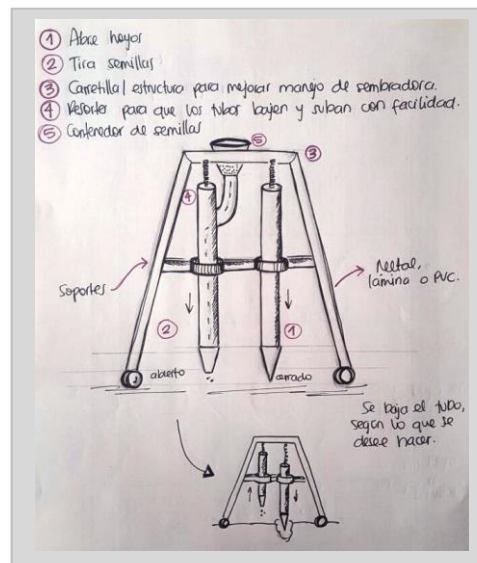 ① Abre hoyos
② Tira semillas
③ Carretilla / estructura para mejorar manejo de sembradora.
④ Resortes para que los tubos bajen y suban con facilidad.
⑤ Contenedor de semillas
⑤
③
④
Soportes
Metal,
lámina o PVC.
②
①
abierto
cerrado
Se baja el tubo,
según lo que se
desee hacer.